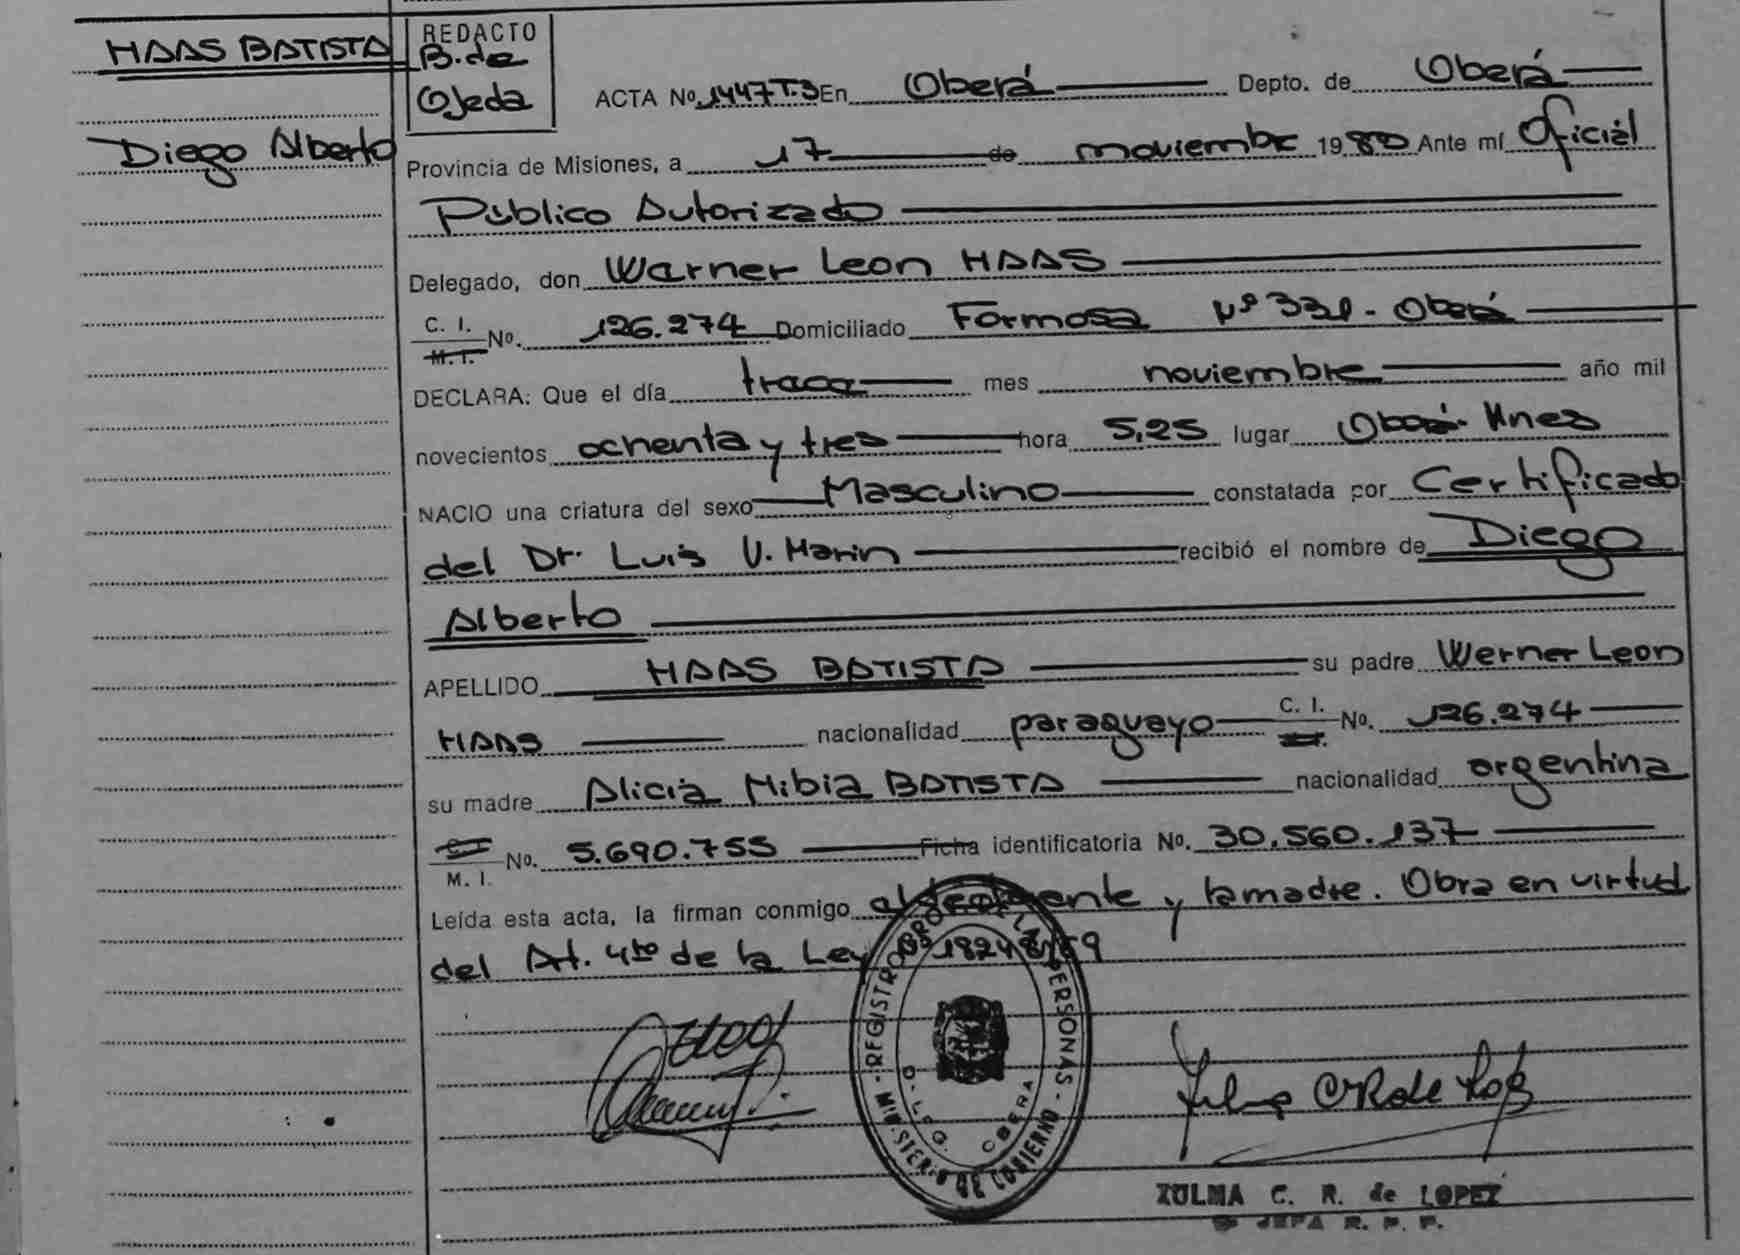 HAAS BATISTA
Diego Alberto
REDACTO
B. de
Ojeda
ACTA No. 1447 T.3 En Oberá Depto. de Oberá
Provincia de Misiones, a 17 de noviembre 1983 Ante mí Oficial
Público Autorizado
Delegado, don Warner Leon HAAS
C. I. No. 126.274 Domiciliado Formosa Nº 331 - Oberá
M. I.
DECLARA: Que el día trece mes noviembre año mil
novecientos ochenta y tres hora 5,25 lugar Oberá - Mnes
NACIO una criatura del sexo Masculino constatada por Certificado
del Dr. Luis V. Marin recibió el nombre de Diego
Alberto
APELLIDO HAAS BATISTA su padre Werner Leon
HAAS nacionalidad paraguayo C. I. No. 126.274
su madre Alicia Nibia BATISTA nacionalidad argentina
C. I. No. 5.690.755 Ficha identificatoria No. 30.560.137
M. I.
Leída esta acta, la firman conmigo el declarante y la madre. Obra en virtud
del Art. 4to de la Ley 18248/69
REGISTRO PROV. DE LAS PERSONAS - MINISTERIO DE GOBIERNO
OBERA
ZULMA C. R. de LOPEZ
JEFA R. P. P.